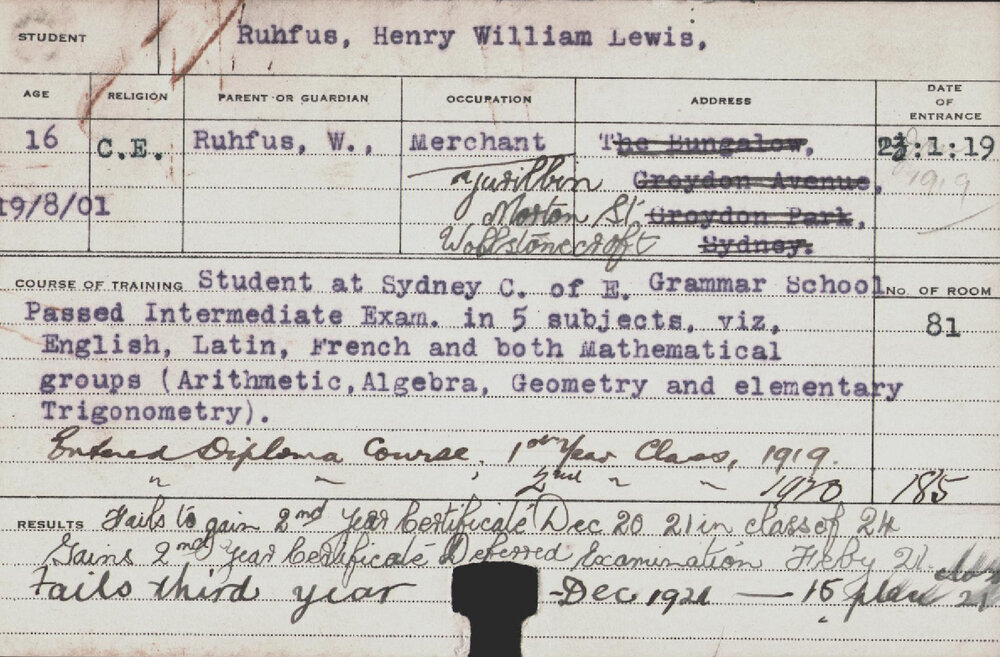 STUDENT Ruhfus, Henry William Lewis,
AGE RELIGION PARENT OR GUARDIAN OCCUPATION ADDRESS DATE OF ENTRANCE
16 C.E. Ruhfus, W., Merchant The Bungalow, :1:19
Croydon Avenue, 1919
19/8/01 Morton St. Croydon Park,
Wollstonecroft Sydney.
COURSE OF TRAINING Student at Sydney C. of E. Grammar School No. OF ROOM
Passed Intermediate Exam. in 5 subjects, viz, 81
English, Latin, French and both Mathematical
groups (Arithmetic, Algebra, Geometry and elementary
Trigonometry).
Entered Diploma Course. 1st Year Class, 1919.
" " ' 2nd " " 1920 185
RESULTS Fails to gain 2nd Year Certificate Dec 20 21 in class of 24
Gains 2nd Year Certificate Deferred Examination Feby 21.
Fails third year - Dec 1921 — 15 place 21